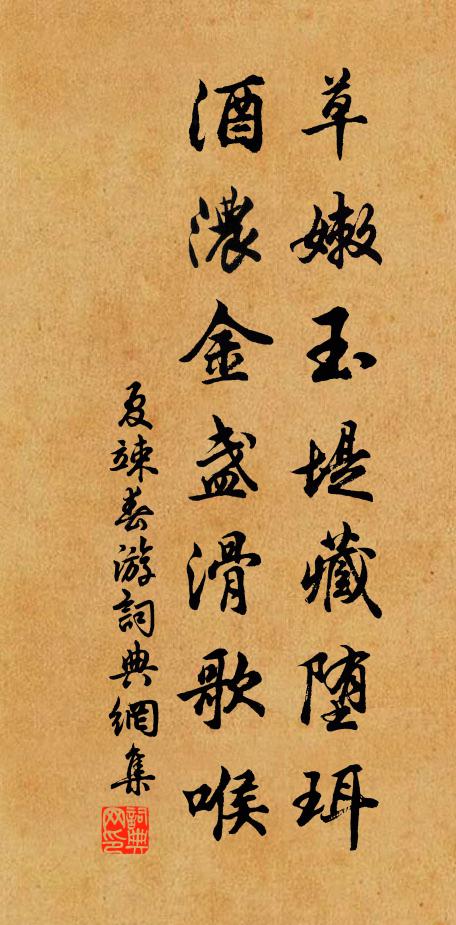 草嫩玉堤藏堕珥
酒濃金盞滑歌喉
夏竦春游詞典網集
詞典网印